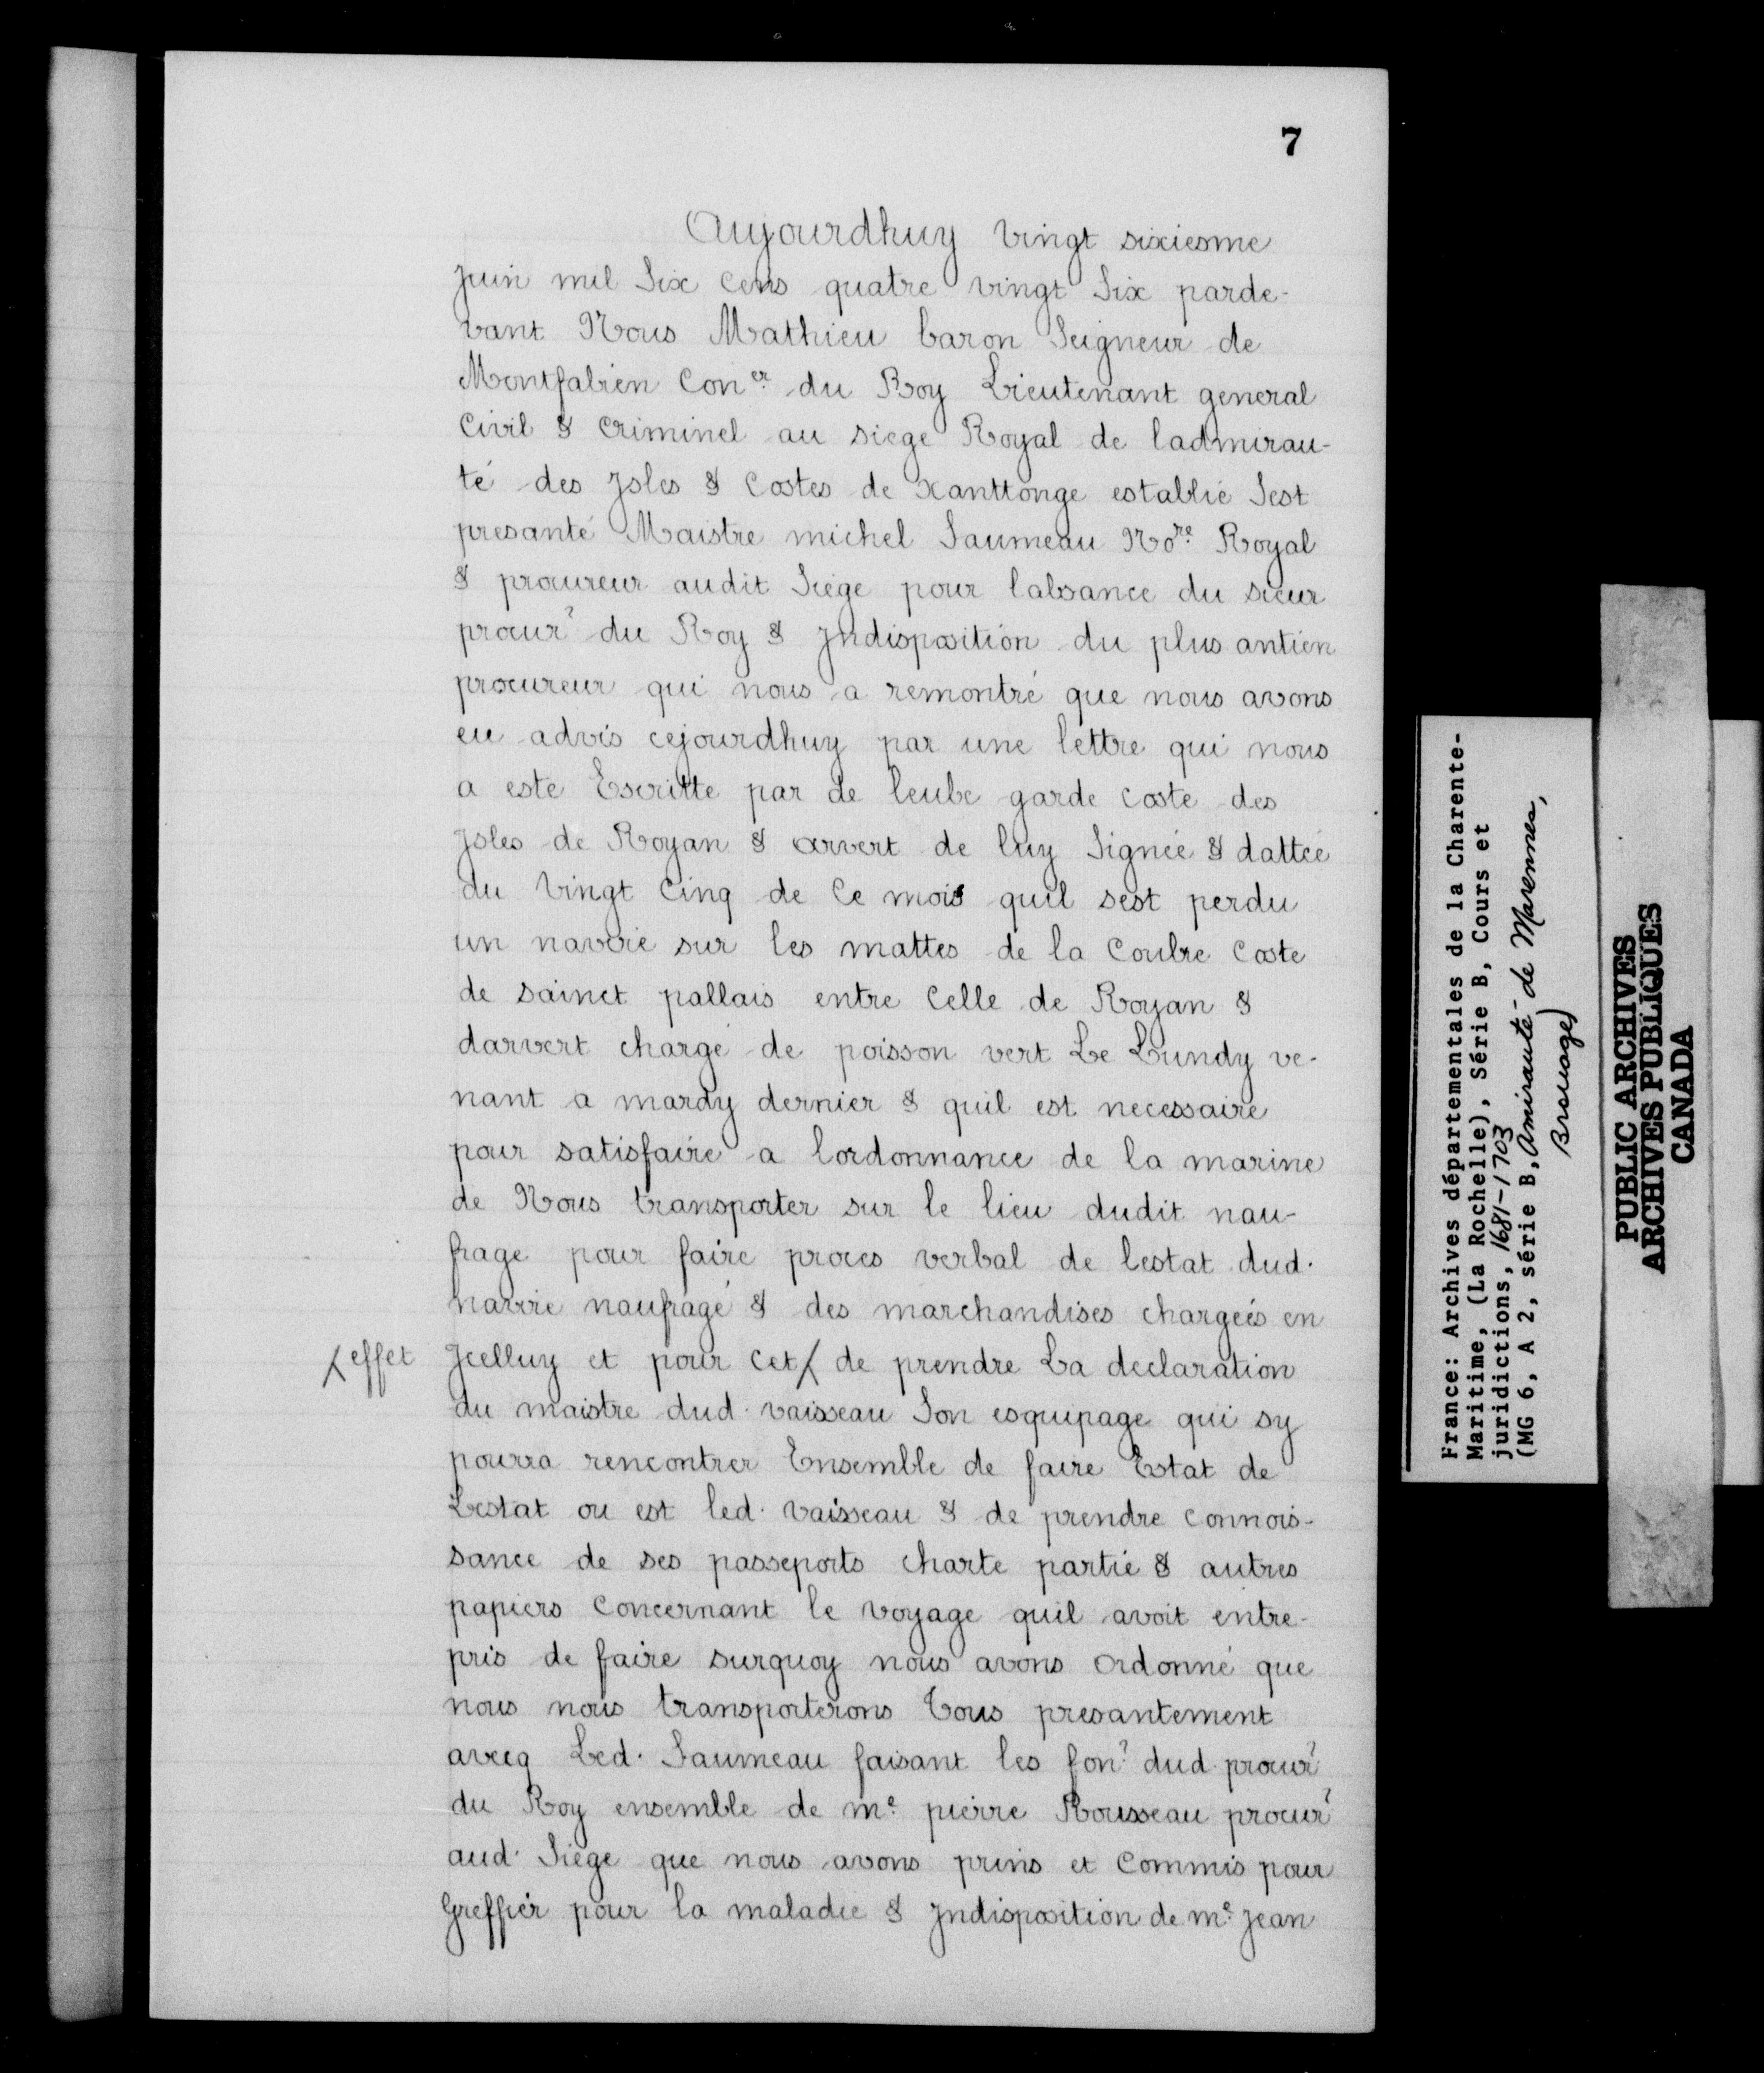 7
Aujourdhuy vingt sixiesme
Juin mil Six Cens quatre vingt Six parde-
vant Nous Mathieu baron Seigneur de
Montfabien Con.er du Roy Lieutenant general
Civil & Criminel au siege Royal de ladmirau-
té des Jsles & Costes de xanttonge establie Sest
presanté Maistre michel Saumeau No.re Royal
& procureur audit Siege pour labsance du sieur
procur.r du Roy & Jndisposition du plus antien
procureur qui nous a remontré que nous avons
eu advis cejourdhuy par une lettre qui nous
a este Escritte par de leube garde coste des
Jsles de Royan & arvert de luy Signée & dattée
du Vingt Cinq de Ce mois quil sest perdu
un navire sur les mattes de la Coubre Coste
de sainct pallais entre Celle de Royan &
darvert chargé de poisson vert Le Lundy ve-
nant a mardy dernier & quil est necessaire
pour satisfaire a lordonnance de la marine
de Nous transporter sur le lieu dudit nau-
frage pour faire proces verbal de lestat dud.
navire naufragé & des marchandises chargeés en
effet Jcelluy et pour Cet de prendre La declaration
du maistre dud. vaisseau Son esquipage qui sy
pourra rencontrer Ensemble de faire Estat de
Lestat ou est led. vaisseau & de prendre Connois-
sance de ses passeports charte partie & autres
papiers Concernant le voyage quil avoit entre-
pris de faire surquoy nous avons ordonné que
nous nous transporterons Tous presantement
avecq Led. Saumeau faisant les fon.r dud. procur.r
du Roy ensemble de m.e pierre Rousseau procur.r
aud. Siege que nous avons prins et Commis pour
Greffier pour la maladie & Jndisposition de m.e Jean
France: Archives départementales de la Charente-
Maritime, (La Rochelle), Série B, Cours et
juridictions, 1681-1703
(MG 6, A 2, série B, Amirauté de Marennes,
Brouage)
PUBLIC ARCHIVES
ARCHIVES PUBLIQUES
CANADA